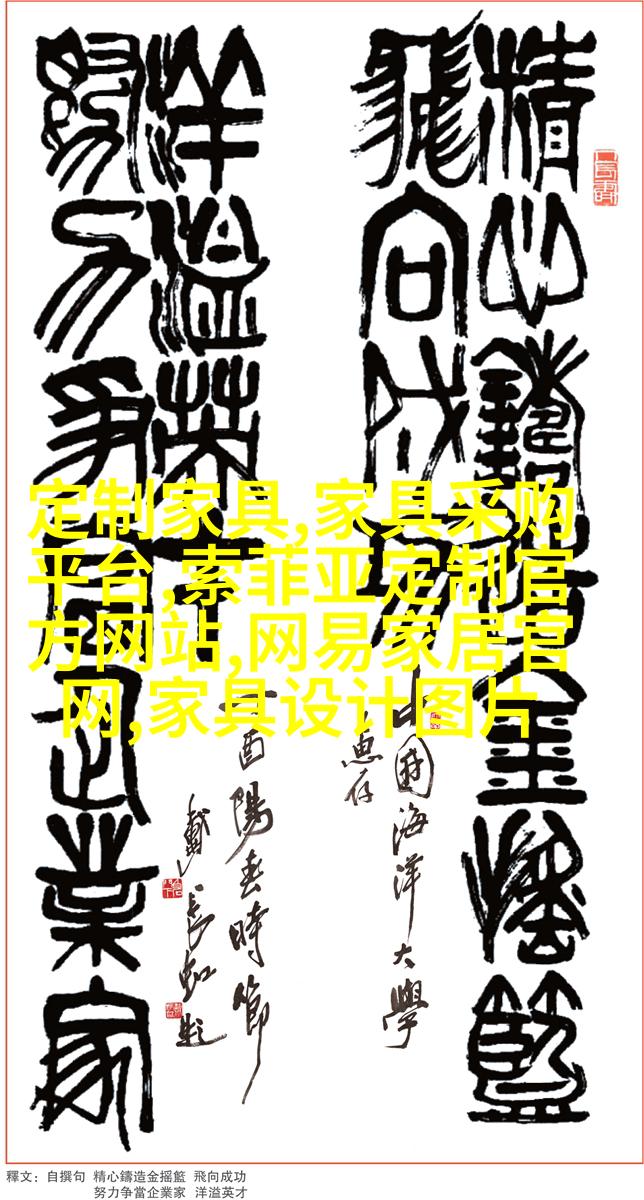 精心鑄造金摇籃
飛向成功
努力争當企業家
洋溢英才
中國海洋大學
惠存
酉陽春時節
戴長虹題
定制家具,家具采购
平台,索菲亚定制官
方网站,网易家居官
网,家具设计图片
釋文：自撰句 精心鑄造金摇籃 飛向成功
努力争當企業家 洋溢英才